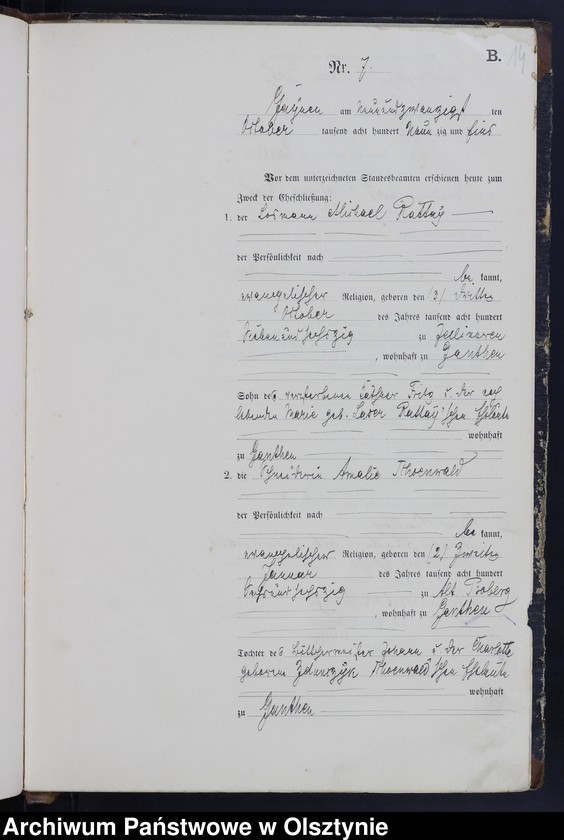 B. 14
Nr. 7.
am neunundzwanzigsten
Oktober tausend acht hundert neun zig und eins
Vor dem unterzeichneten Standesbeamten erschienen heute zum
Zweck der Eheschließung:
1. der Losmann Michael Rattay
der Persönlichkeit nach
be kannt,
evangelischer Religion, geboren den (3) dritten
Oktober des Jahres tausend acht hundert
siebenundsechszig zu
, wohnhaft zu Ganthen
Sohn des verstorbenen Fritz u. der noch
lebenden Marie geb. Rattay'schen Eheleute
wohnhaft
zu Ganthen
2. die Schneiderin Amalie Thoenwald
der Persönlichkeit nach
be kannt,
evangelischer Religion, geboren den (2) zweiten
Januar des Jahres tausend acht hundert
sechsundsechszig zu Alt Proberg
, wohnhaft zu Ganthen
Tochter des Johann u. der Charlotte
geborene Thoenwald'schen Eheleute
wohnhaft
zu Ganthen
Archiwum Państwowe w Olsztynie